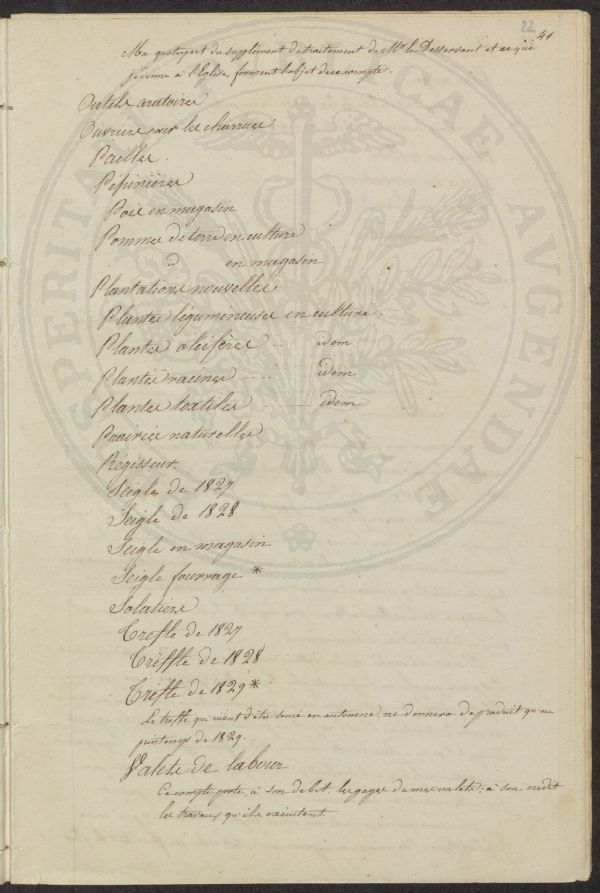 22 41
Ma quotepart du supplément de traitement de Mr. le Desservant et ce que
je donne à l'Eglise, forment l'objet de ce compte.
Outils aratoires
Ouvriers pour les charrues
Pailles.
Pépinières
Pois en magasin
Pommes de terre en culture
id en magasin
Plantations nouvelles.
Plantes légumineuses en culture.
Plantes oléifères ... idem
Plantes racines ..... idem
Plantes textiles ..... idem
Prairies naturelles
Régisseur.
Seigle de 1827
Seigle de 1828
Seigle en magasin
Seigle fourrage *
Solatiers
Trefle de 1827
Treffle de 1828
Trefle de 1829 *
Le treffle qui vient d'être semé en automne ne donnera de produit qu'au
printemps de 1829.
Valets de labour
Ce compte porte, à son débit, les gages de mes valets; à son crédit
les travaux qu'ils exécutent.
PERITAE AMICAE AVGENDAE